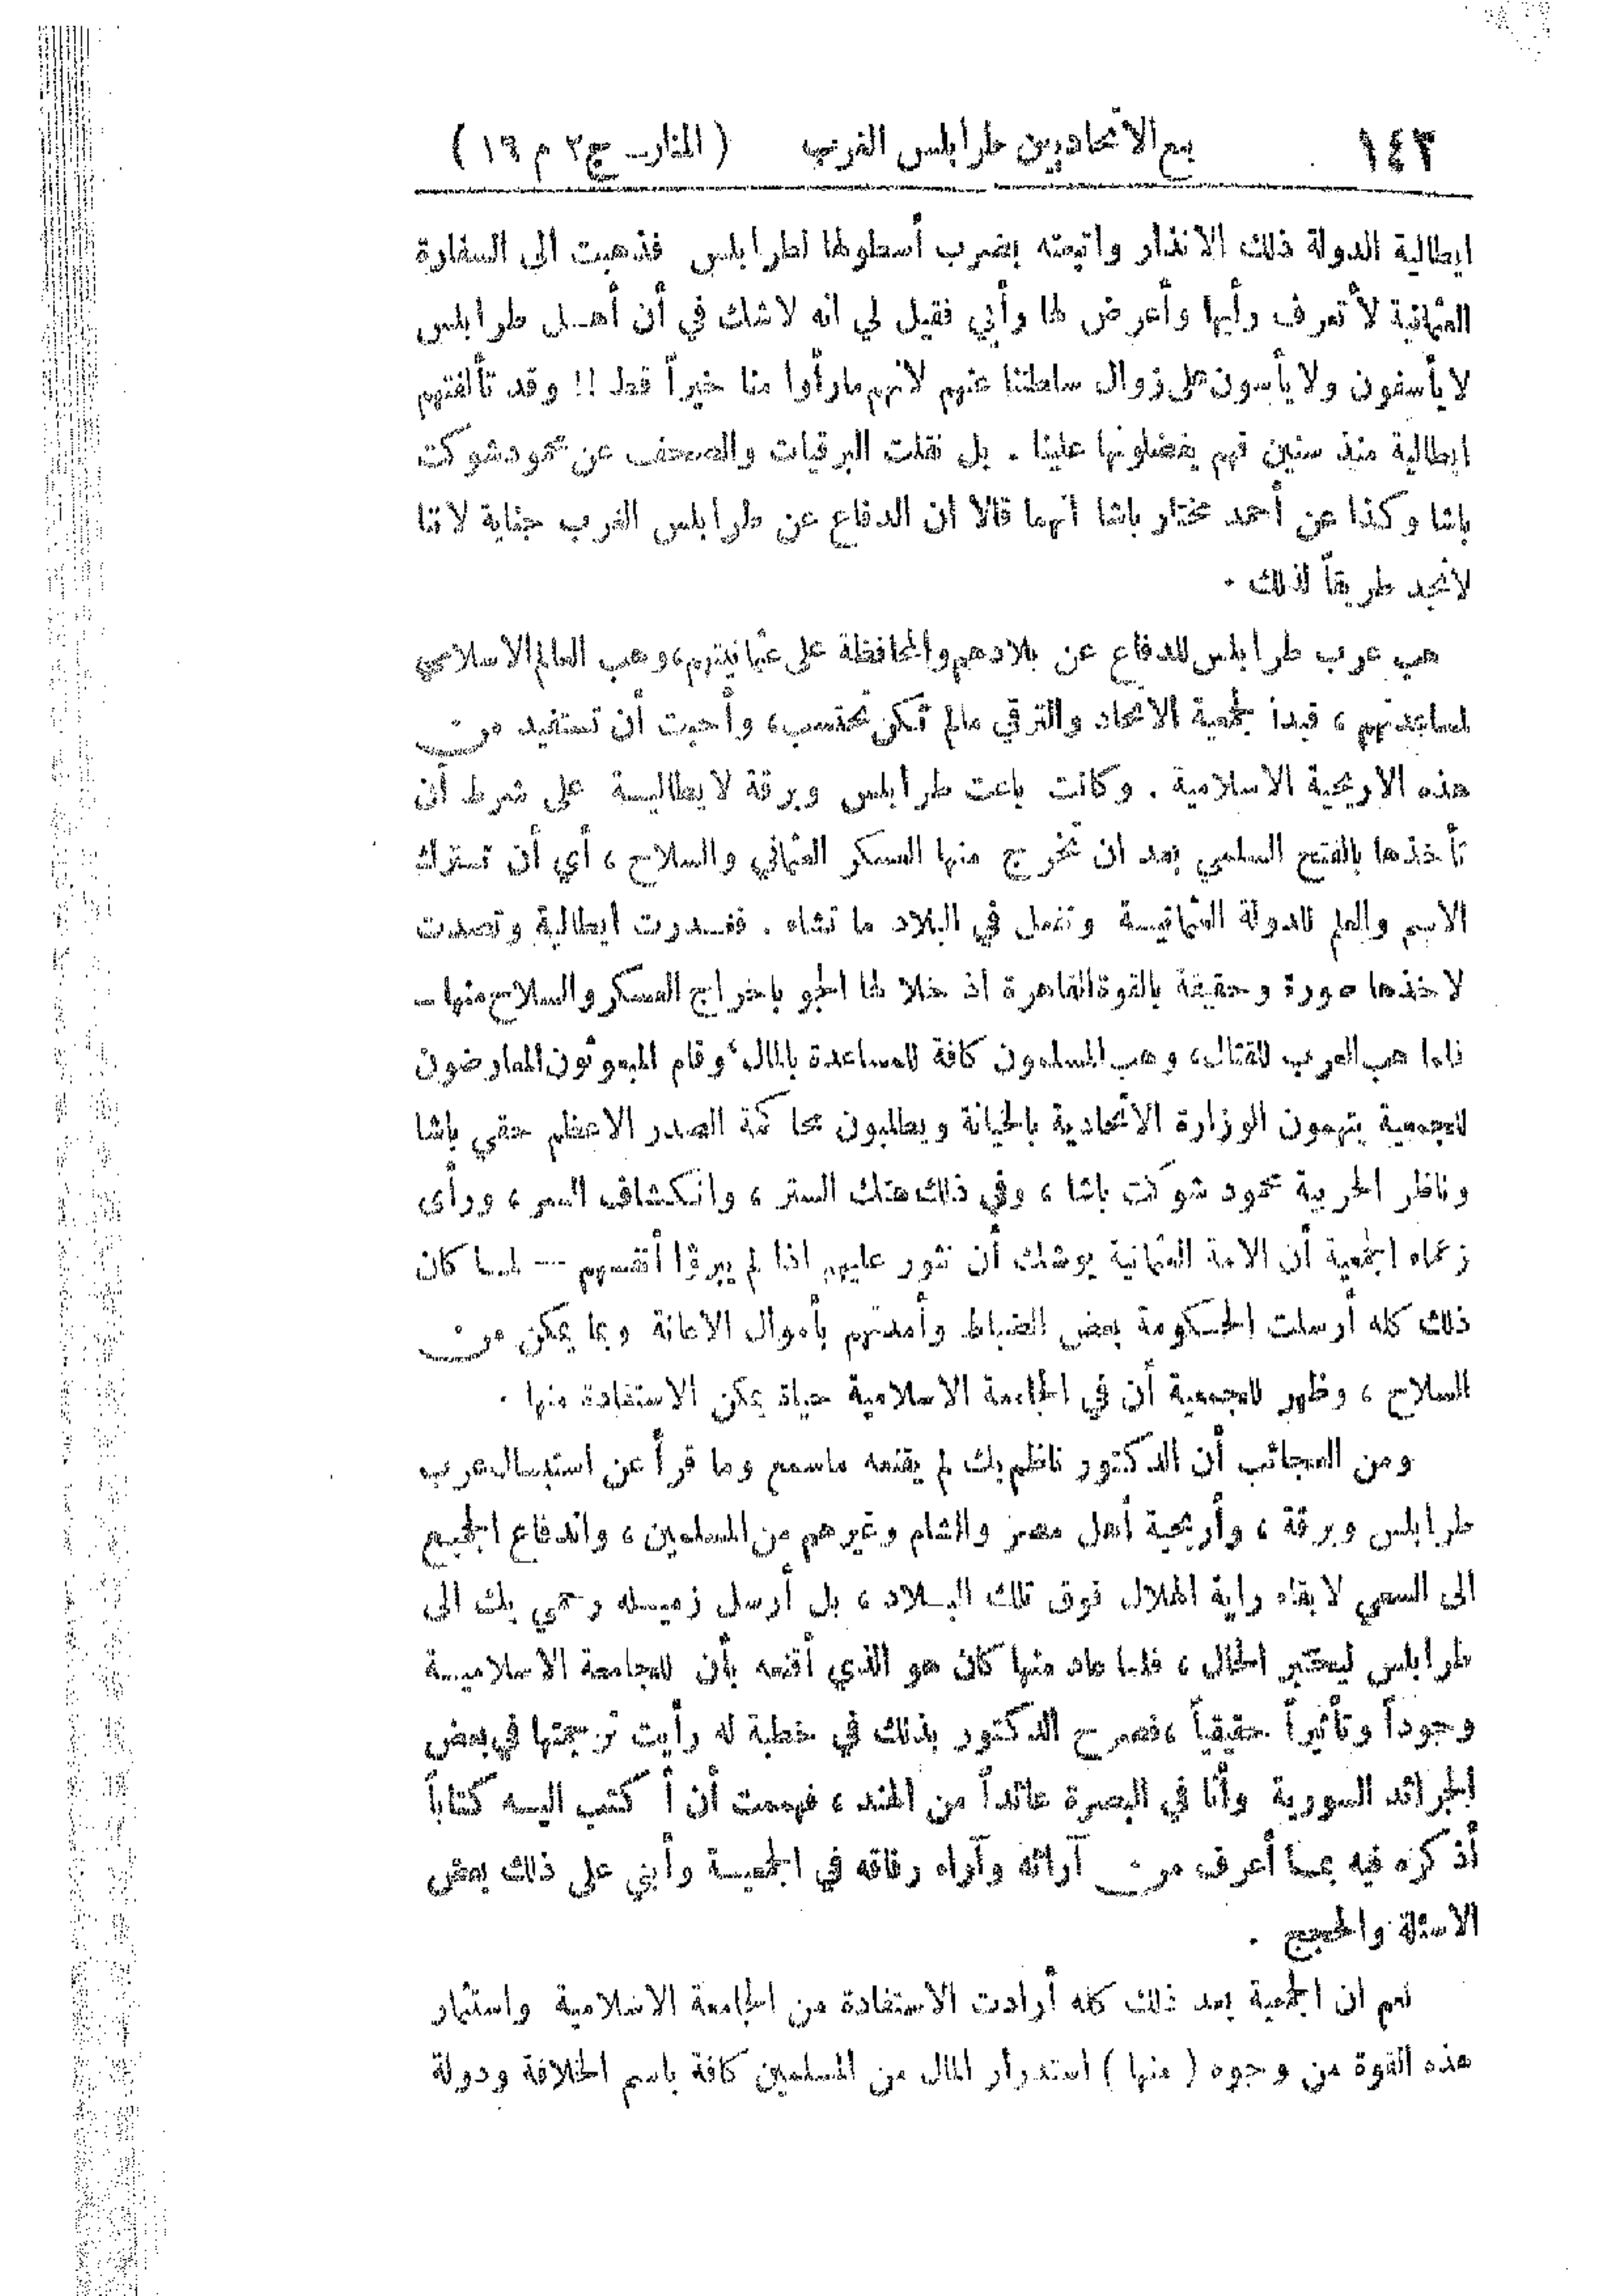 ١٤٢ بيع الاتحاديين طرابلس الغرب ( المنار ـ ج ٢ م ١٦ )
ايطالية الدولة ذلك الانذار واتبعته بضرب أسطولها لطرابلس فذهبت الى السفارة
العثمانية لأتعرف رأيها وأعرض لها رأيي فقيل لي انه لاشك في أن أهل طرابلس
لا يأسفون ولا يأسون على زوال سلطتنا عنهم لانهم مارأوا منا خيراً قط !! وقد تألفتهم
ايطالية منذ سنين فهم يفضلونها علينا . بل نقلت البرقيات والصحف عن محمود شوكت
باشا وكذا عن أحمد مختار باشا انهما قالا ان الدفاع عن طرابلس الغرب جناية لاننا
لانجد طريقاً لذلك .
هب عرب طرابلس للدفاع عن بلادهم والمحافظة على عثمانيتهم، وهب العالم الاسلامي
لمساعدتهم ، فبدا لجمعية الاتحاد والترقي مالم تكن تحتسب، وأحبت أن تستفيد من
هذه الاريحية الاسلامية . وكانت باعت طرابلس وبرقة لايطالية على شرط أن
تأخذها بالفتح السلمي بعد ان تخرج منها العسكر العثماني والسلاح ، أي أن تترك
الاسم والعلم للدولة العثمانية وتفعل في البلاد ما تشاء . فغدرت ايطالية وتصدت
لاخذها صورة وحقيقة بالقوة القاهرة اذ خلا لها الجو باخراج العسكر والسلاح منها ـ
فلما هب العرب للقتال، وهب المسلمون كافة للمساعدة بالمال، وقام المبعوثون المعارضون
للجمعية يتهمون الوزارة الاتحادية بالخيانة ويطلبون محاكمة الصدر الاعظم حقي باشا
وناظر الحربية محمود شوكت باشا ، وفي ذلك هتك الستر ، وانكشاف السر ، ورأى
زعماء الجمعية أن الامة العثمانية يوشك أن تثور عليهم اذا لم يبرؤا أنفسهم — لما كان
ذلك كله أرسلت الحكومة بعض الضباط وأمدتهم بأموال الاعانة وبما يمكن من
السلاح ، وظهر للجمعية أن في الجامعة الاسلامية حياة يمكن الاستفادة منها .
ومن العجائب أن الدكتور ناظم بك لم يقنعه ماسمع وما قرأ عن استبسال عرب
طرابلس وبرقة ، وأريحية أهل مصر والشام وغيرهم من المسلمين ، واندفاع الجميع
الى السعي لابقاء راية الهلال فوق تلك البلاد ، بل أرسل زميله رحمي بك الى
طرابلس ليختبر الحال ، فلما عاد منها كان هو الذي أقنعه بأن للجامعة الاسلامية
وجوداً وتأثيراً حقيقياً ، فصرح الدكتور بذلك في خطبة له رأيت ترجمتها في بعض
الجرائد السورية وأنا في البصرة عائداً من الهند ، فهممت أن أكتب اليه كتاباً
أذكره فيه بما أعرف من آرائه وآراء رفاقه في الجمعية وأبني على ذلك بعض
الاسئلة والحجج .
نعم ان الجمعية بعد ذلك كله أرادت الاستفادة من الجامعة الاسلامية واستثمار
هذه القوة من وجوه ( منها ) استدرار المال من المسلمين كافة باسم الخلافة ودولة